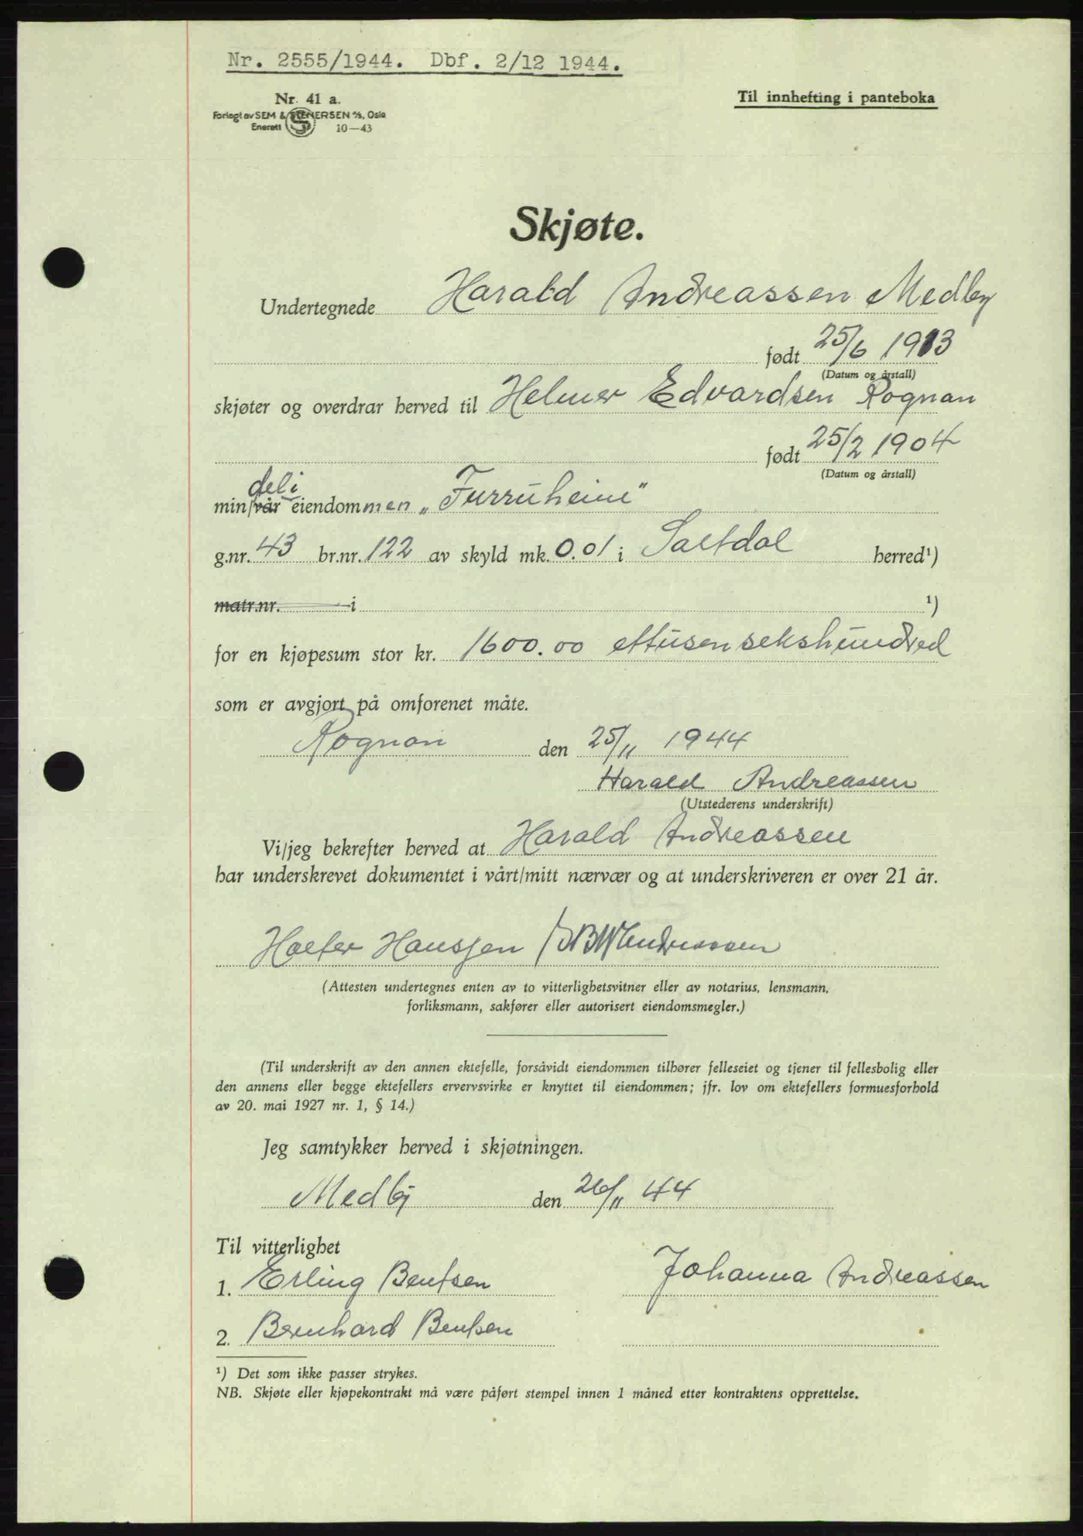 Nr. 2555/1944. Dbf. 2/12 1944.
Nr. 41 a.
Til innhefting i panteboka
Forlagt av SEM & STENERSEN A/S, Oslo
Enerett S 10—43
Skjøte.
Undertegnede Harald Andreassen Medby
født 25/6 1913
(Datum og årstall)
skjøter og overdrar herved til Helmer Edvardsen Rognan
født 25/2 1904
(Datum og årstall)
del i
min/vår eiendommen „Furruheim"
g.nr. 43 br.nr. 122 av skyld mk. 0.01 i Saltdal herred¹)
matr.nr. i ¹)
for en kjøpesum stor kr. 1600.00 ettusensekshundred
som er avgjort på omforenet måte.
Rognan den 25/11 1944
Harald Andreassen
(Utstederens underskrift)
Vi/jeg bekrefter herved at Harald Andreassen
har underskrevet dokumentet i vårt/mitt nærvær og at underskriveren er over 21 år.
Hansen
(Attesten undertegnes enten av to vitterlighetsvitner eller av notarius, lensmann,
forliksmann, sakfører eller autorisert eiendomsmegler.)
(Til underskrift av den annen ektefelle, forsåvidt eiendommen tilhører felleseiet og tjener til fellesbolig eller
den annens eller begge ektefellers ervervsvirke er knyttet til eiendommen; jfr. lov om ektefellers formuesforhold
av 20. mai 1927 nr. 1, § 14.)
Jeg samtykker herved i skjøtningen.
Medby den 26/11 44
Til vitterlighet
1. Erling Bentsen Johanna Andreassen
2. Bernhard Bentsen
¹) Det som ikke passer strykes.
NB. Skjøte eller kjøpekontrakt må være påført stempel innen 1 måned etter kontraktens opprettelse.